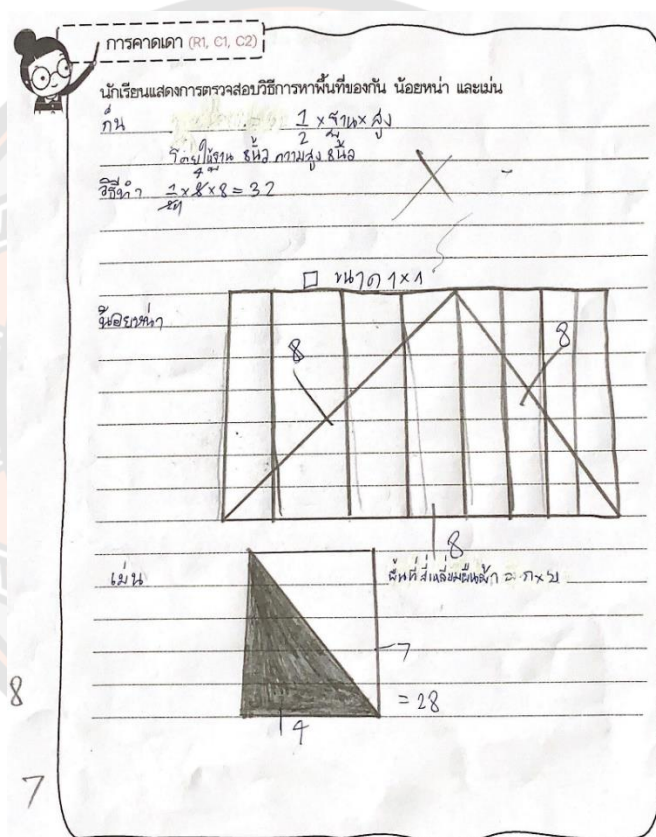 การคาดเดา (R1, C1, C2)
นักเรียนแสดงการตรวจสอบวิธีการหาพื้นที่ของกัน น้อยหน่า และเม่น
กัน
1/2 × ฐาน × สูง
โดยให้ฐาน 8นิ้ว ความสูง 8นิ้ว
วิธีทำ 1/2 × 8 × 8 = 32
4
1
□ ขนาด 1×1
น้อยหน่า
8
8
8
เม่น
พื้นที่สี่เหลี่ยมผืนผ้า = ก×ย
7
= 28
4
8
7